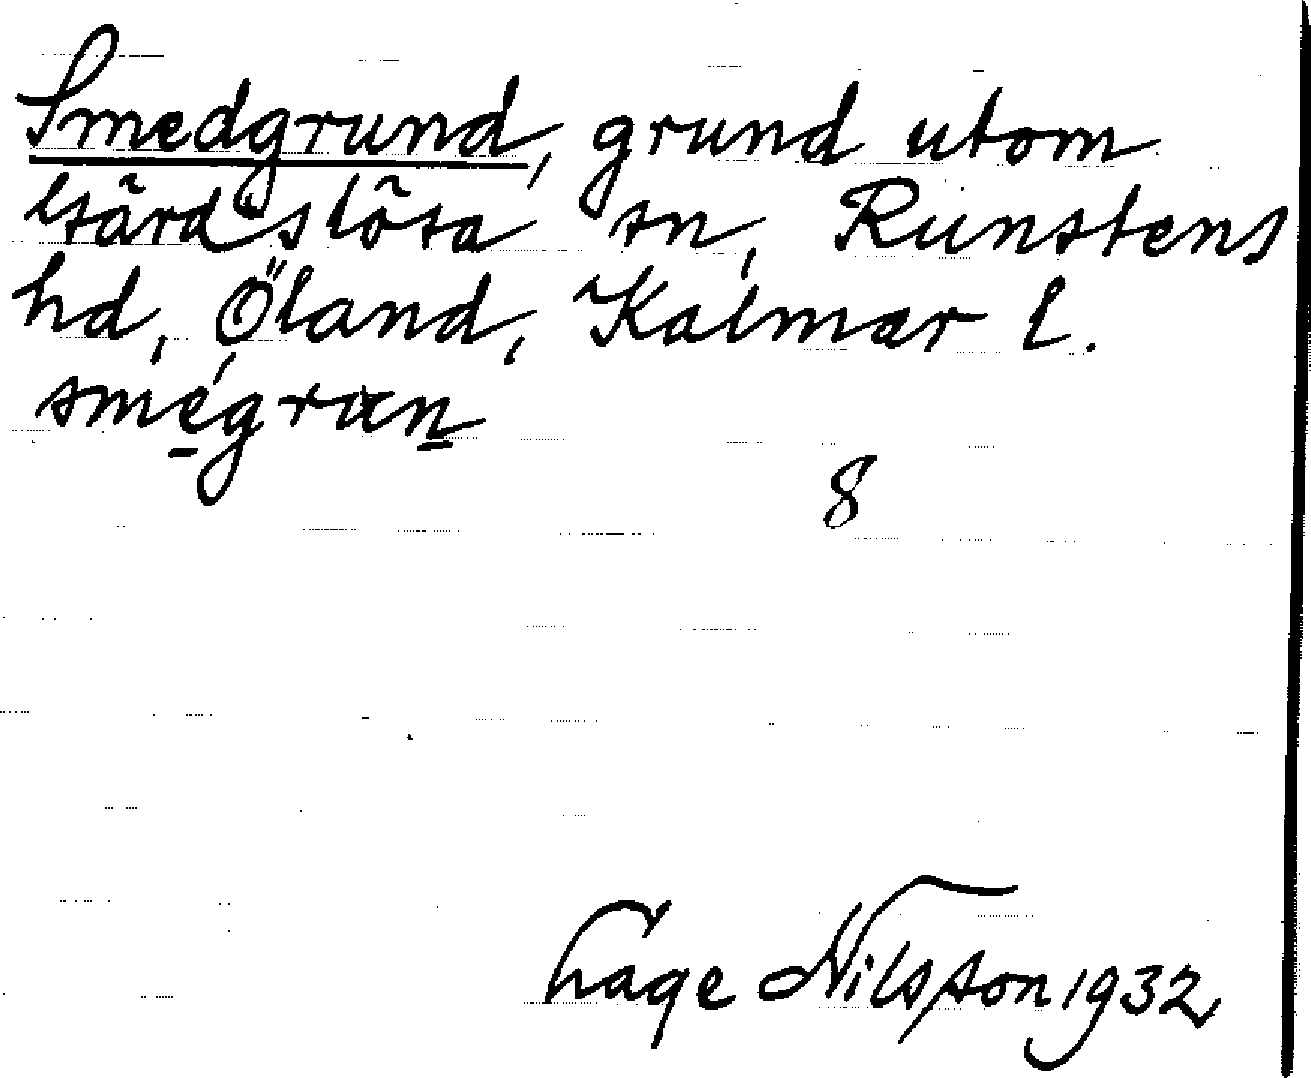 Smedgrund, grund utom
Gärdslösa sn, Runstens
hd, Öland, Kalmar l.
smégran
8
Hage Nilsson 1932